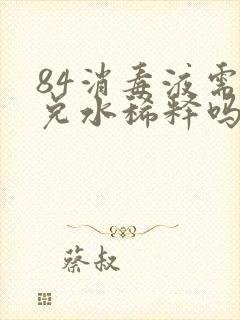 84消毒液需
兑水稀释吗
蔡叔